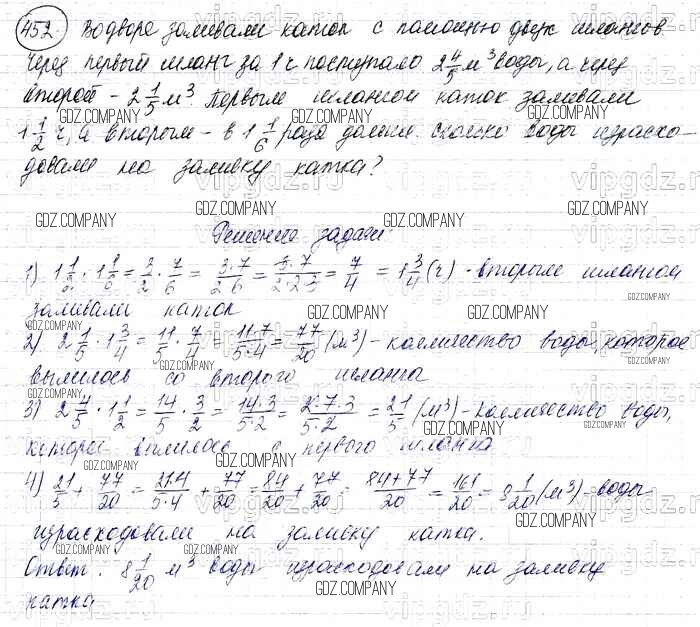 452. Во дворе заливали каток с помощью двух шлангов.
Через первый шланг за 1 ч поступало 2 4/5 м³ воды, а через
второй - 2 1/5 м³. Первым шлангом каток заливали
1 1/2 ч, а вторым - в 1 1/6 раза дольше. Сколько воды израсхо-
довали на заливку катка?
Решение задачи
1) 1 1/2 · 1 1/6 = 3/2 · 7/6 = 3·7/2·6 = 3·7/2·2·3 = 7/4 = 1 3/4 (ч) - вторым шлангом
заливали каток
2) 2 1/5 · 1 3/4 = 11/5 · 7/4 = 11·7/5·4 = 77/20 (м³) - колличество воды, которое
вылилось со второго шланга
3) 2 4/5 · 1 1/2 = 14/5 · 3/2 = 14·3/5·2 = 2·7·3/5·2 = 21/5 (м³) - колличество воды,
которое вылилось с первого шланга
4) 21/5 + 77/20 = 21·4/5·4 + 77/20 = 84/20 + 77/20 = 84+77/20 = 161/20 = 8 1/20 (м³) - воды
израсходовали на заливку катка.
Ответ: 8 1/20 м³ воды израсходовали на заливку
катка
GDZ.COMPANY
vipgdz.ru